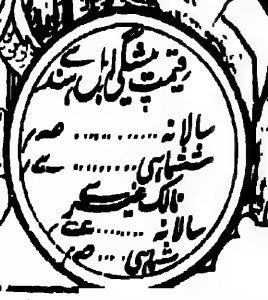 قیمت پیشگی اہل ہند سے
سالانہ ........
ششماہی ........
ممالک غیر سے
سالانہ ........
ششماہی ...